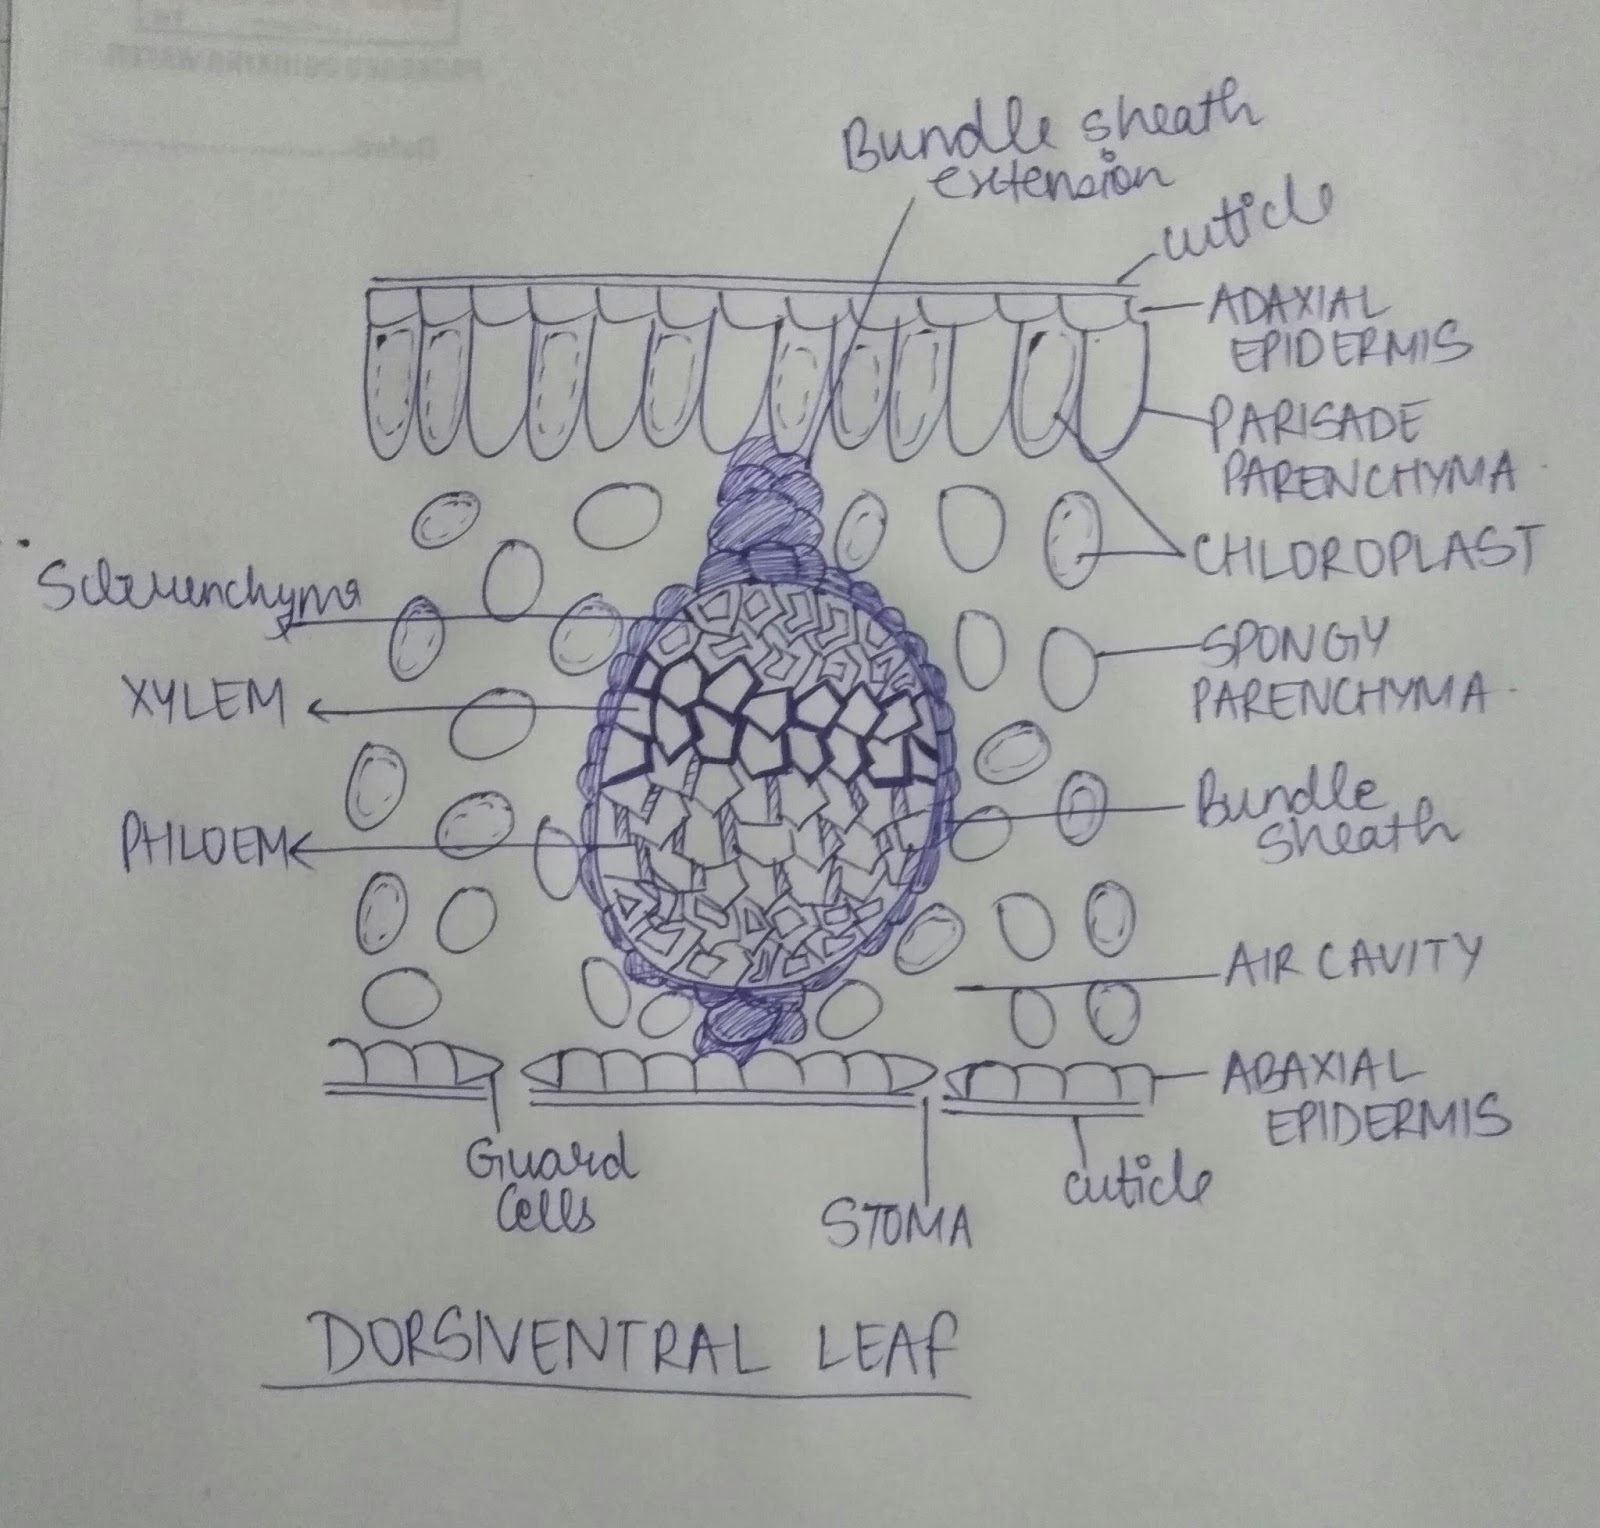 Bundle sheath
extension
cuticle
ADAXIAL
EPIDERMIS
PARISADE
PARENCHYMA
CHLOROPLAST
Sclerenchyma
SPONGY
PARENCHYMA
XYLEM
Bundle
sheath
PHLOEM
AIR CAVITY
ABAXIAL
EPIDERMIS
Guard
Cells
cuticle
STOMA
DORSIVENTRAL LEAF